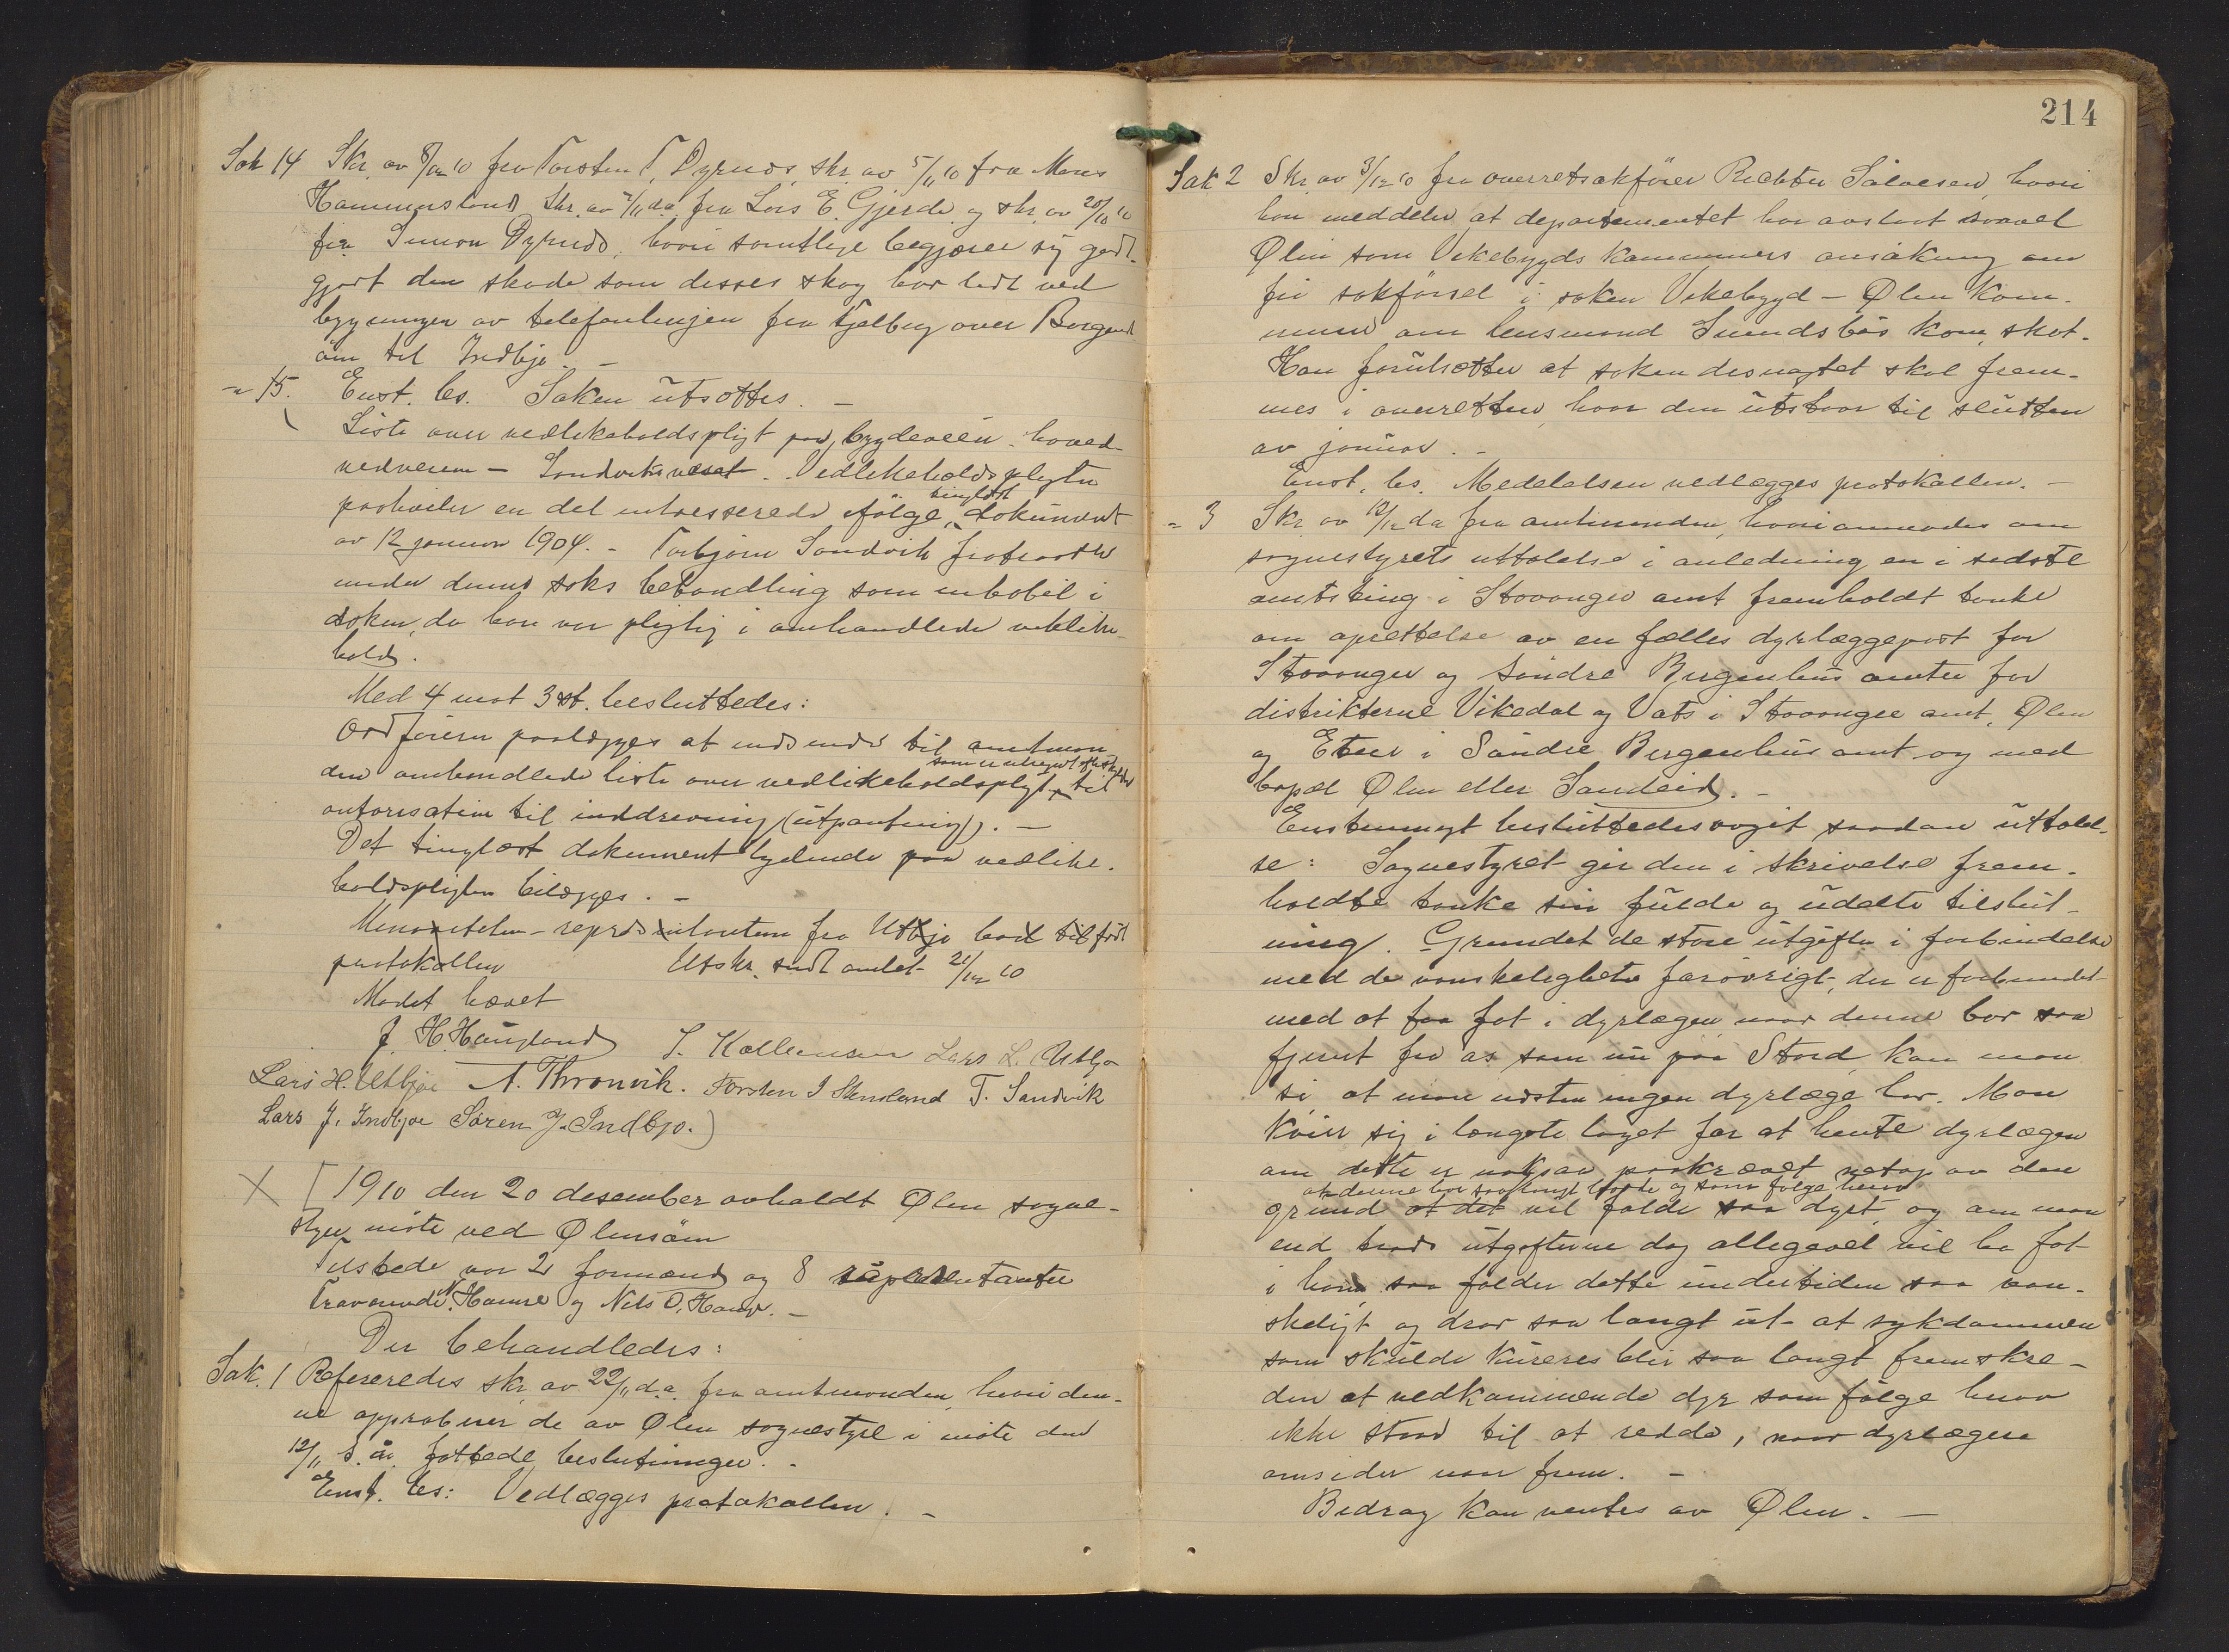 Sak 14 Skr. av 8/10 10 fra Torsten T. Dyrnes, skr. av 5/11 10 fra Mons
Hammersland Skr. av 7/11 d.a. fra Lars E. Gjerde og skr. av 20/10 10
fra Simon Dyrnes, hvori samtlige begjærer sig godt-
gjort den skade som deres skog har lidt ved
bygningen av telefonlinjen fra Fjelberg over Borgund-
øen til Indbjo. –
" 15. Enst. bes. Saken utsættes. –
Liste over vedlikeholdspligt paa bygdeveien hoved-
veien – Sandviksvaset. Vedlikeholdspligten
paahviler en del interesserede ifølge tinglæst dokument
av 12 januar 1904. – Torbjørn Sandvik fratraadte
under denne saks behandling som inhabil i
saken, da han var pligtig i omhandlede vedlike-
hold.
Med 4 mot 3 st. besluttedes:
Ordføreren paalægges at indsende til amtman-
den omhandlede liste over vedlikeholdspligt, til
autorisation til inddrivning (utpantning). –
Det tinglæst dokument lydende paa vedlike-
holdspligten bilægges. –
Minoriteten – repræsentanten fra Utbjo bad tilført
protokollen Utskr. sendt amtet 21/12 10
Mødet hævet
J. H. Haugland S. Kallevson Lars L. Utbjo
Lars H. Utbjoe A. Thronvik. Torsten I Stensland T. Sandvik
Lars J. Indbjoe Søren J. Indbjo.
1910 den 20 desember avholdt Ølen sogne-
styre møte ved Ølensøen
Tilstede var 2 formænd og 8 repræsentanter
Fraværende N. Hamre og Nils O. Haug. –
Der behandledes:
Sak. 1 Refereredes skr. av 22/11 d.a. fra amtmanden, hvori den-
ne approberer de av Ølen sognestyre i møte den
12/11 s.å. fattede beslutninger. –
Enst. bes: Vedlægges protokollen. –
214
Sak 2 Skr. av 3/12 10 fra overretsakfører Richter Salvesen, hvori
han meddeler at departementet har avslaat saavel
Ølen som Vikebygds kommuners ansøkning om
fri sakførsel i saken Vikebygd – Ølen kom-
mune om lensmand Svendsbøs kom. skat.
Han forutsætter at saken desuagtet skal frem-
mes i overretten, hvor den utstaar til slutten
av januar. –
Enst. bes. Meddelelsen vedlægges protokollen. –
" 3 Skr. av 12/12 d.a. fra amtmanden, hvori anmodes om
sognestyrets uttalelse i anledning en i sidste
amtsting i Stavanger amt fremholdt tanke
om oprettelse av en fælles dyrlægepost for
Stavanger og søndre Bergenhus amter for
distrikterne Vikedal og Vats i Stavanger amt, Ølen
og Etne i Søndre Bergenhus amt og med
bopæl Ølen eller Sandeid. –
Enstemmigt besluttedes avgit saadan uttalel-
se: Sognestyret gir den i skrivelse frem-
holdte tanke sin fulde og udelte tilslut-
ning. Grundet de store utgifter i forbindelse
med de vanskeligheter forøvrigt, der er forbundet
med at faa fat i dyrlægen naar denne bor saa
fjernt fra os som nu paa Stord, kan man
si at man næsten ingen dyrlæge har. Man
kvier sig i længste laget for at hente dyrlægen
om dette er nok saa paakrævet netop av den
at denne bor saa langt borte og som følge herav
grund at det vil falde saa dyrt, og om man
end trods utgifterne dog allikevel vil ha fat
i ham, saa falder dette undertiden saa van-
skeligt og drar saa langt ut at sykdommen
som skulde kureres blir saa langt fremskre-
den at vedkommende dyr som følge herav
ikke staar til at redde, naar dyrlægen
omsider naar frem. –
Bidrag kan ventes av Ølen. –